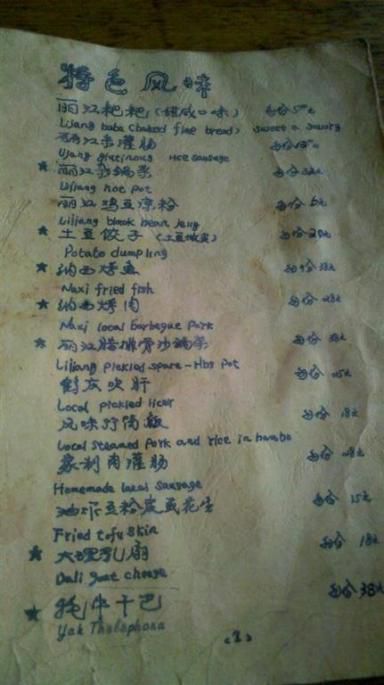 特色风味
丽江粑粑(甜咸口味) 每份5元
Lijiang baba (baked fine bread) sweet & savory
丽江米灌肠
Lijiang glutinous rice sausage
★ 丽江
Lijiang hot pot
丽江鸡豆凉粉 每份6元
Lijiang black bean jelly
★ 土豆饺子 每份
Potato dumpling
★ 纳西烤鱼 每份
Naxi fried fish
★ 纳西烤肉 每份28元
Naxi local barbeque pork
★ 丽江腊排骨沙锅 每份
Lijiang pickled spare-Hbs pot
鲊灰吹肝 每份15元
Local pickled liver
风味竹筒飯 每份18元
Local steamed pork and rice in bambo
家制肉灌肠 每份28元
Homemade local sausage
油炸豆粉皮或花生 每份15元
Fried tofu skin
★ 大理乳扇 每份18元
Dali goat cheese
★ 牦牛干巴 每份38元
Yak